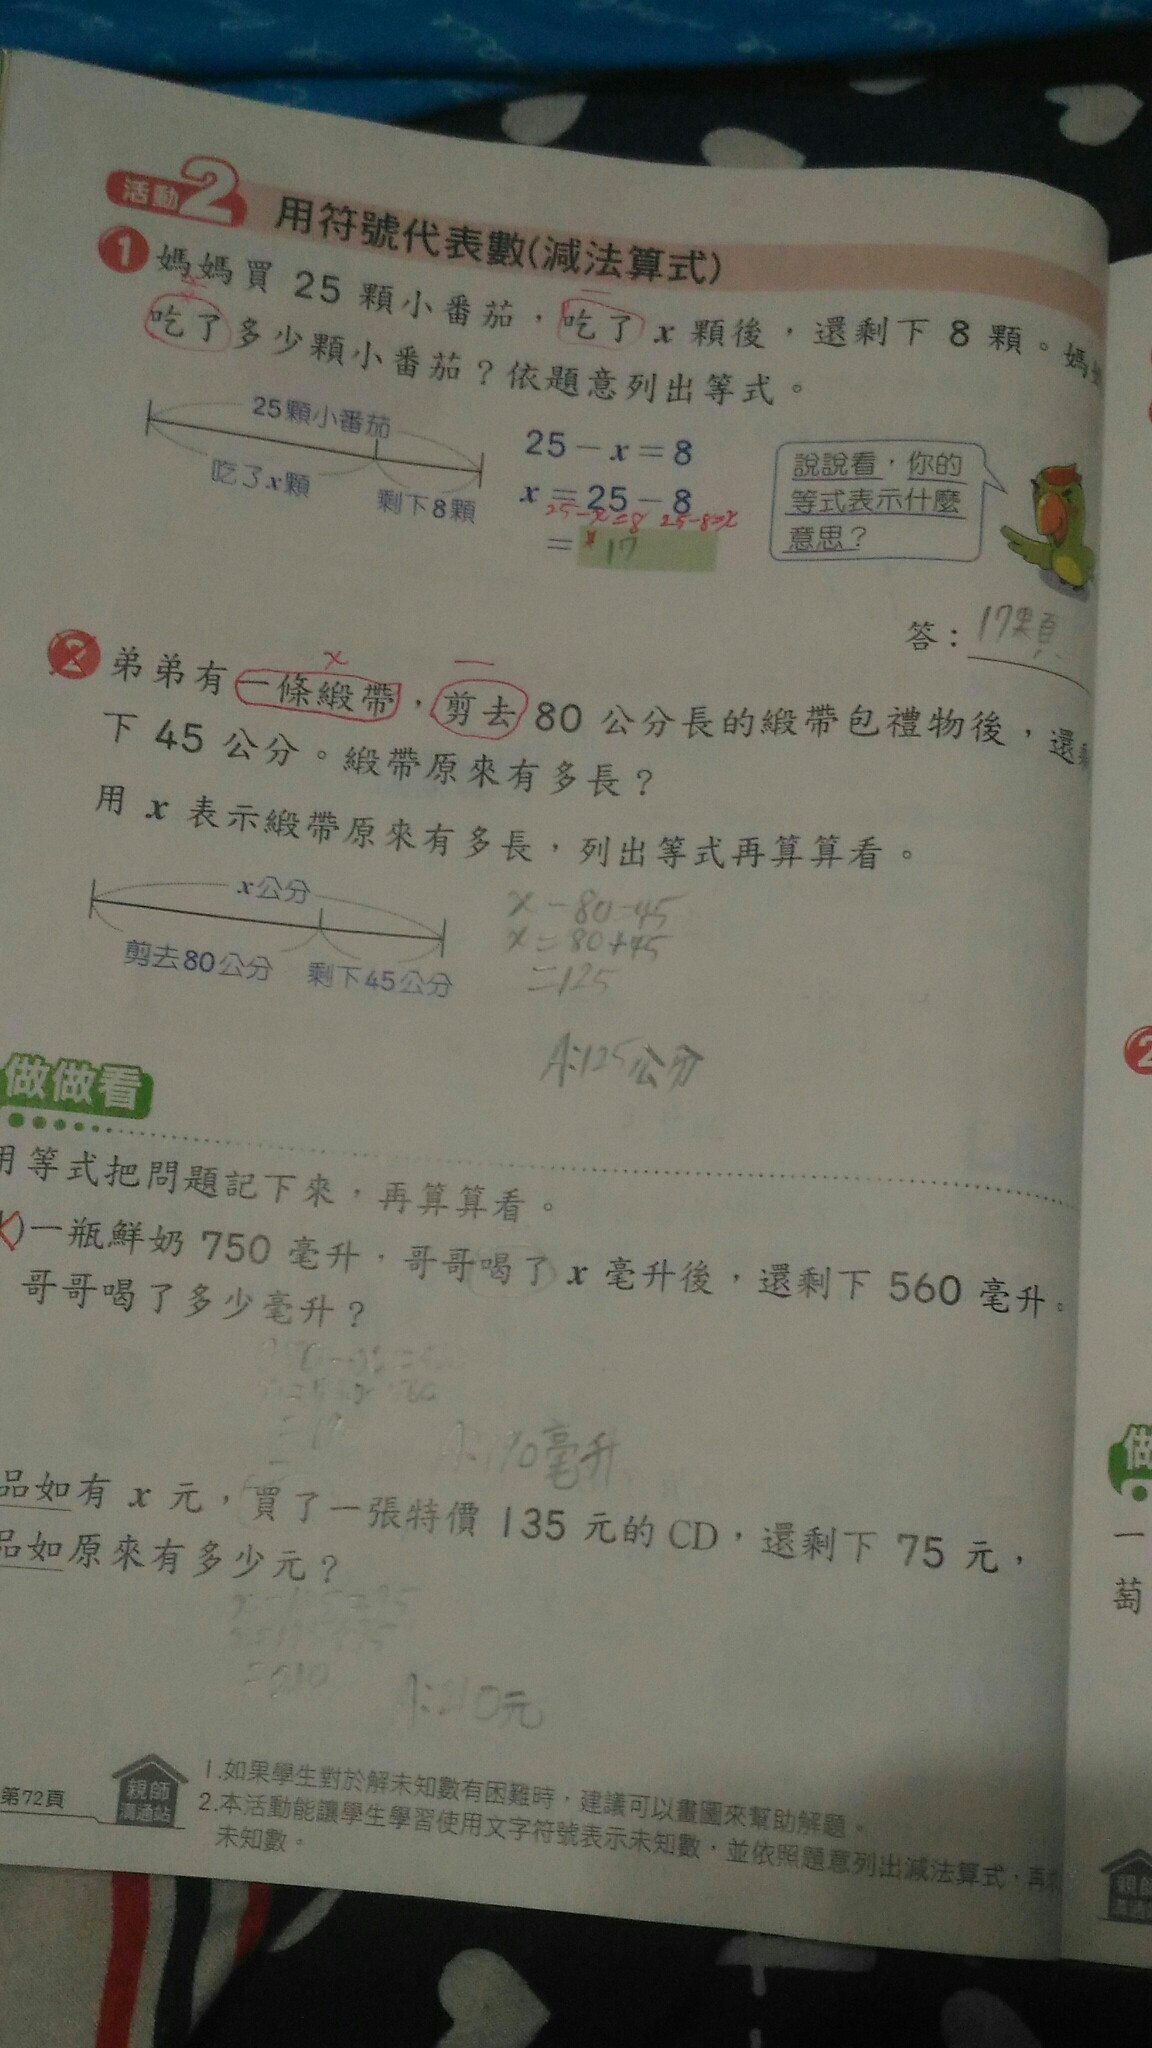 活動2 用符號代表數(減法算式)
1 媽媽買 25 顆小番茄，吃了 x 顆後，還剩下 8 顆。媽媽
x
吃了多少顆小番茄？依題意列出等式。
25顆小番茄
吃了x顆
剩下8顆
25－x＝8
x＝25－8
25-x=8 25-8=x
＝ 17
說說看，你的
等式表示什麼
意思？
答：17顆
x
2 弟弟有一條緞帶，剪去 80 公分長的緞帶包禮物後，還剩
下 45 公分。緞帶原來有多長？
用 x 表示緞帶原來有多長，列出等式再算算看。
x公分
剪去80公分
剩下45公分
x-80=45
x=80+45
=125
A:125公分
做做看
用等式把問題記下來，再算算看。
)一瓶鮮奶 750 毫升，哥哥喝了 x 毫升後，還剩下 560 毫升。
哥哥喝了多少毫升？
A:190毫升
品如有 x 元，買了一張特價 135 元的 CD，還剩下 75 元，
品如原來有多少元？
x-135=75
=210
A:210元
第72頁
親師
溝通站
1.如果學生對於解未知數有困難時，建議可以畫圖來幫助解題。
2.本活動能讓學生學習使用文字符號表示未知數，並依照題意列出減法算式，再
未知數。
2
做
一
萄
親師